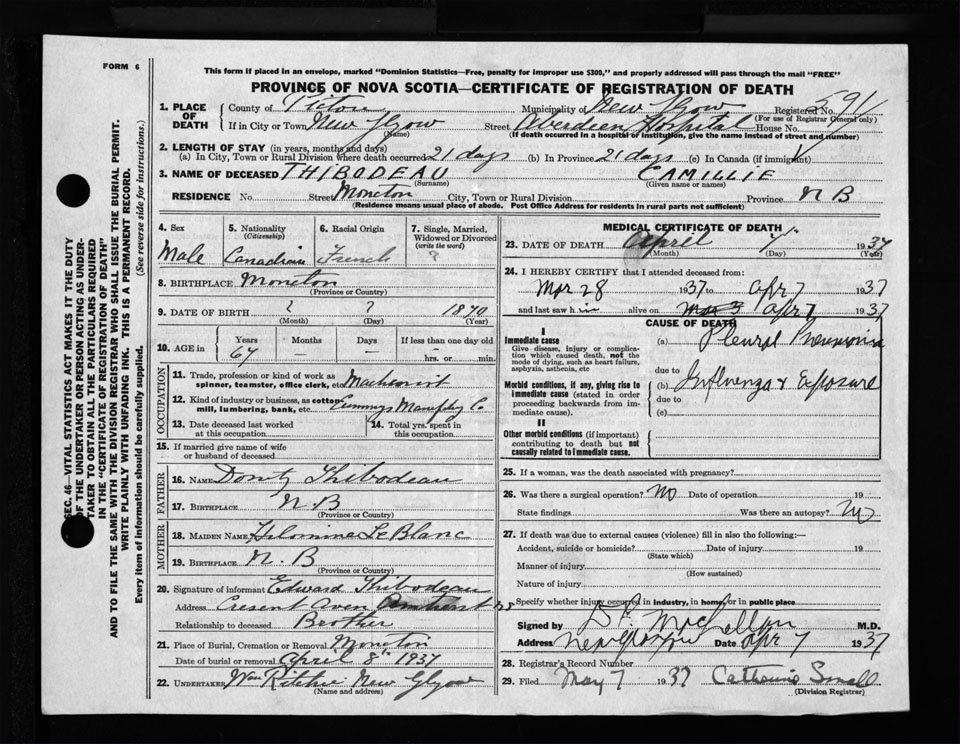 FORM 6
This form if placed in an envelope, marked "Dominion Statistics—Free, penalty for improper use $300," and properly addressed will pass through the mail "FREE"
PROVINCE OF NOVA SCOTIA—CERTIFICATE OF REGISTRATION OF DEATH
1. PLACE OF DEATH County of Pictou Municipality of New Glgow Registered No. 91
(For use of Registrar General only)
If in City or Town New Glgow Street Aberdeen Hospital House No.
(Name) (If death occurred in a hospital of institution, give the name instead of street and number)
2. LENGTH OF STAY (in years, months and days)
(a) In City, Town or Rural Division where death occurred 21 days (b) In Province 21 days (c) In Canada (if immigrant)
3. NAME OF DECEASED THIBODEAU CAMILLIE
(Surname) (Given name or names)
RESIDENCE No. Street Moncton City, Town or Rural Division Province N B
(Residence means usual place of abode. Post Office Address for residents in rural parts not sufficient)
4. Sex 5. Nationality (Citizenship) 6. Racial Origin 7. Single, Married, Widowed or Divorced (write the word)
Male Canadian French ?
8. BIRTHPLACE Moncton
(Province or Country)
9. DATE OF BIRTH ? ? 1870
(Month) (Day) (Year)
10. AGE in Years Months Days If less than one day
67 – – hrs. or min.
OCCUPATION
11. Trade, profession or kind of work as spinner, teamster, office clerk, etc. Machinist
12. Kind of industry or business, as cotton mill, lumbering, bank, etc.
13. Date deceased last worked at this occupation 14. Total yrs. spent in this occupation
15. If married give name of wife or husband of deceased
FATHER
16. NAME Thibodeau
17. BIRTHPLACE N B
(Province or Country)
MOTHER
18. MAIDEN NAME LeBlanc
19. BIRTHPLACE N. B
(Province or Country)
20. Signature of informant Edward Thibodeau
Address Cresent Aven Amherst NS
Relationship to deceased Brother
21. Place of Burial, Cremation or Removal Moncton
Date of burial or removal April 8th 1937
22. UNDERTAKER Wm Ritchie New Glgow
(Name and address)
MEDICAL CERTIFICATE OF DEATH
23. DATE OF DEATH April 7 1937
(Month) (Day) (Year)
24. I HEREBY CERTIFY that I attended deceased from:
Mar 28 1937 to Apr 7 1937
and last saw h im alive on Mar 3 Apr 7 1937
CAUSE OF DEATH
I
Immediate cause
Give disease, injury or complication which caused death, not the mode of dying, such as heart failure, asphyxia, asthenia, etc
(a) Pleural Pneumonia
due to
Morbid conditions, if any, giving rise to immediate cause (stated in order proceeding backwards from immediate cause).
(b) Influenza & Exposure
due to
(c)
II
Other morbid conditions (if important) contributing to death but not causally related to immediate cause.
25. If a woman, was the death associated with pregnancy?
26. Was there a surgical operation? No Date of operation 19
State findings Was there an autopsy? No
27. If death was due to external causes (violence) fill in also the following:—
Accident, suicide or homicide? Date of injury 19
(State which)
Manner of injury
(How sustained)
Nature of injury
Specify whether injury occurred in industry, in home, or in public place
Signed by MacLellan M.D.
Address New Glasgow Date Apr 7 1937
28. Registrar's Record Number
29. Filed May 7 1937 Catherine Small
(Division Registrar)
SEC. 46—VITAL STATISTICS ACT MAKES IT THE DUTY
OF THE UNDERTAKER OR PERSON ACTING AS UNDER-
TAKER TO OBTAIN ALL THE PARTICULARS REQUIRED
IN THE "CERTIFICATE OF REGISTRATION OF DEATH"
AND TO FILE THE SAME WITH THE DIVISION REGISTRAR WHO SHALL ISSUE THE BURIAL PERMIT.
WRITE PLAINLY WITH UNFADING INK. THIS IS A PERMANENT RECORD.
Every item of information should be carefully supplied. (See reverse side for instructions.)